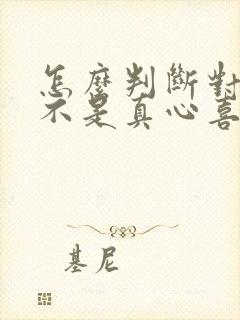 怎麼判斷對
不是真心喜
基尼